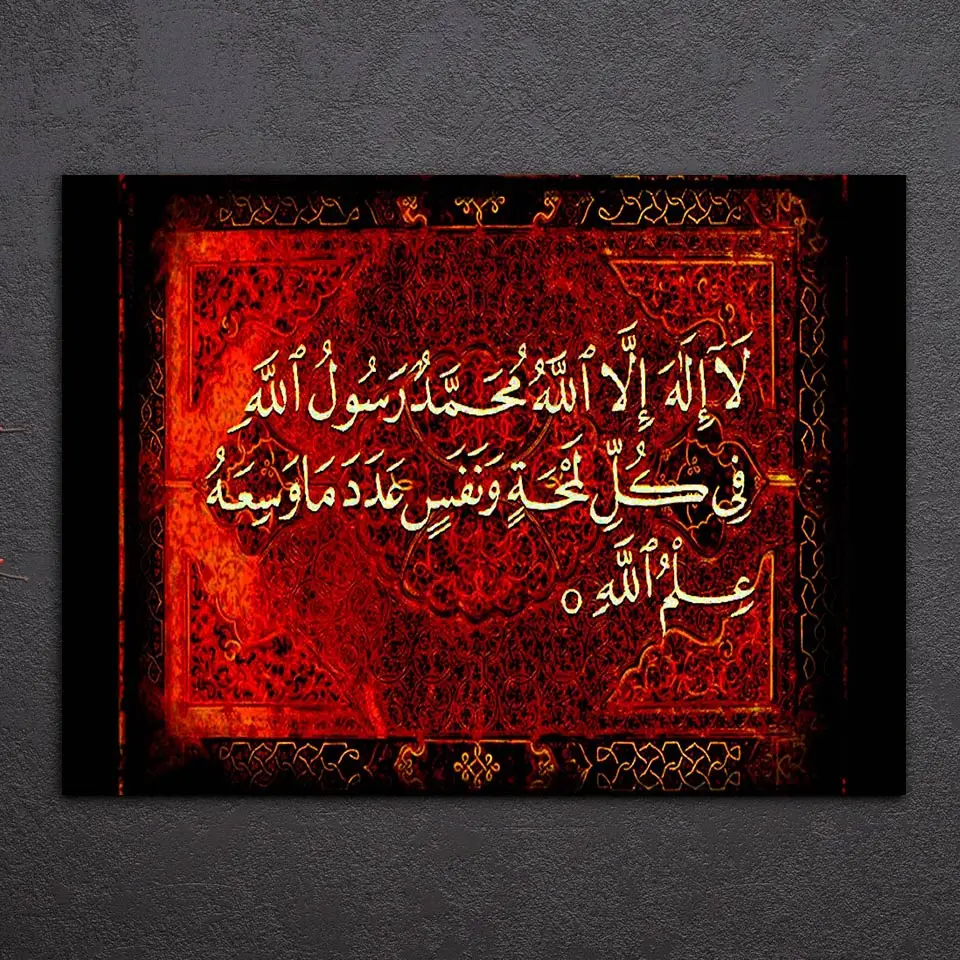 لَآ إِلَٰهَ إِلَّا ٱللَّهُ مُحَمَّدٌ رَسُولُ ٱللَّهِ
فِي كُلِّ لَمْحَةٍ وَنَفَسٍ عَدَدَ مَا وَسِعَهُ
عِلْمُ ٱللَّهِ ○